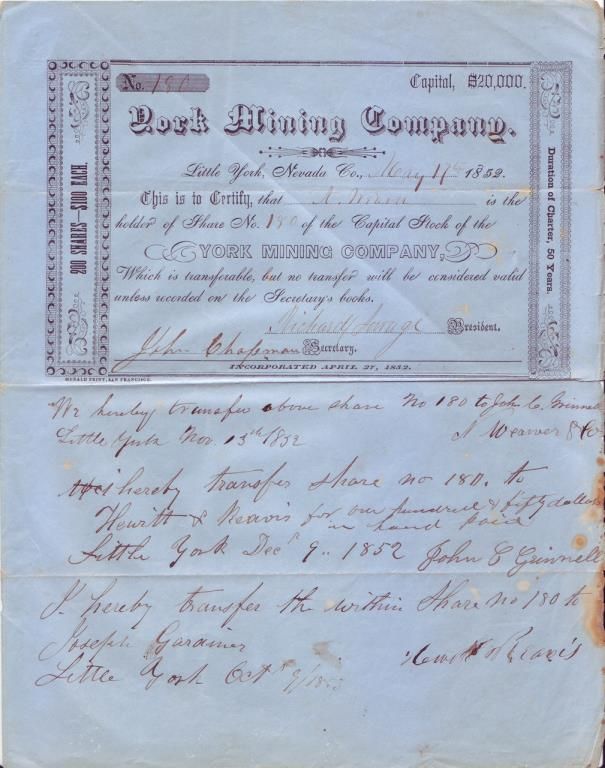 No. 180
Capital, $20,000.
York Mining Company.
Little York, Nevada Co., May 11th 1852.
This is to Certify, that A. is the
holder of Share No. 180 of the Capital Stock of the
YORK MINING COMPANY,
Which is transferable, but no transfer will be considered valid
unless recorded on the Secretary's books.
Richard Savage President.
John Chapman Secretary.
INCORPORATED APRIL 27, 1852.
200 SHARES—$100 EACH.
Duration of Charter, 50 Years.
HERALD PRINT, SAN FRANCISCO.
We hereby transfer above share No 180 to John C. Grinnell
Little York Nov. 13th 1852
Weaver & Co
I hereby transfer share no 180. to
Hewitt & Reavis for one hundred & fifty dollars
in hand paid
Little York Decr 9.. 1852 John C Grinnell
I hereby transfer the within Share no 180 to
Joseph Gardiner
Hewitt & Reavis
Little York Octr 9/1853